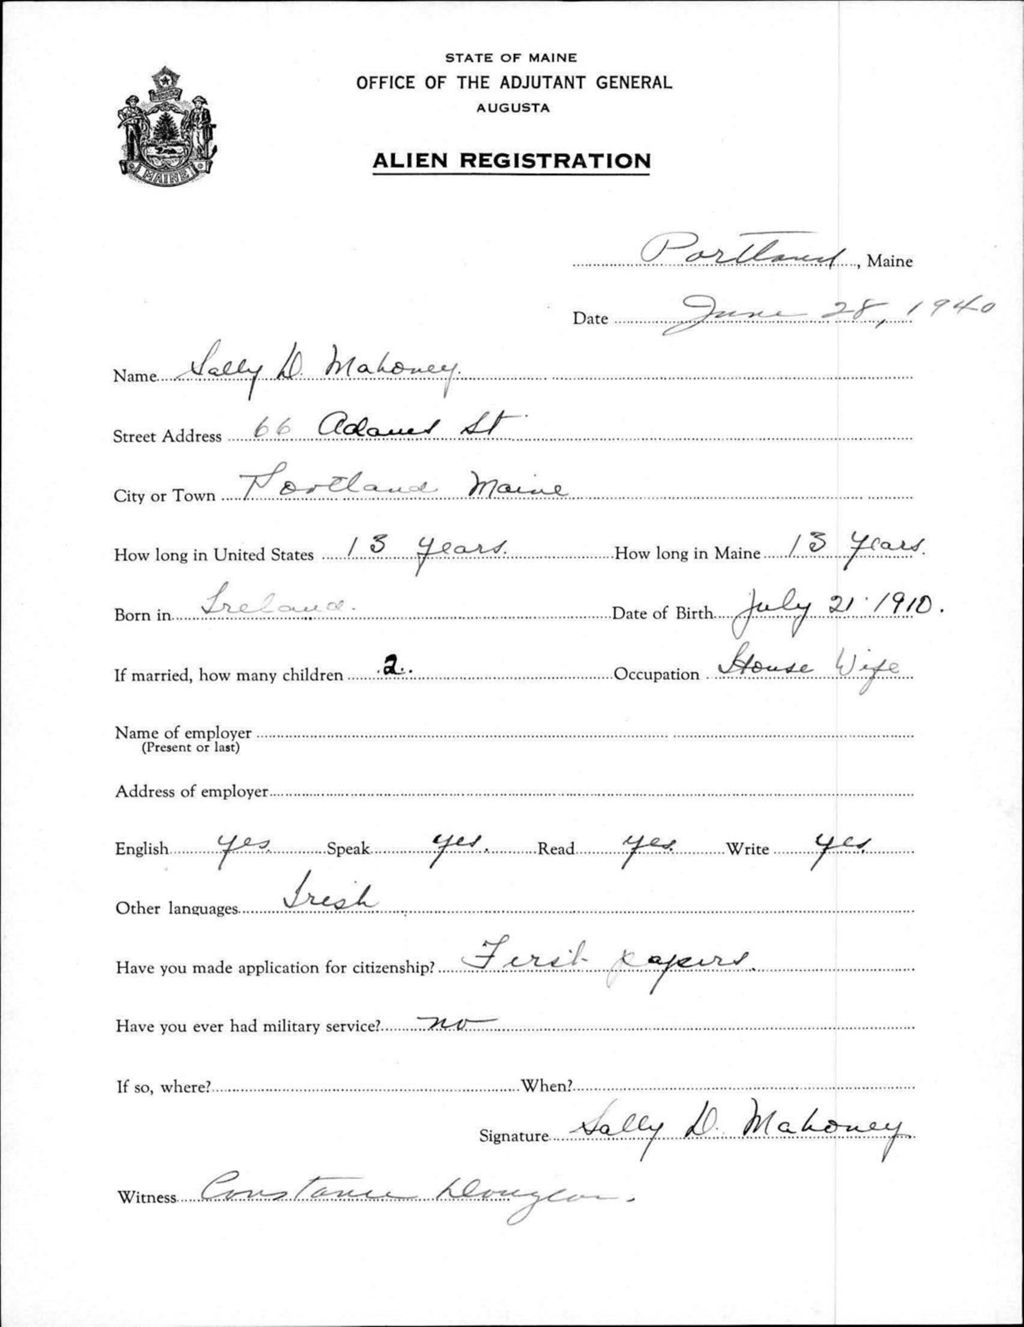 STATE OF MAINE
OFFICE OF THE ADJUTANT GENERAL
AUGUSTA
ALIEN REGISTRATION
MAINE
Portland, Maine
Date June 28, 1940
Name Sally D. Mahoney.
Street Address 66 Adams St
City or Town Portland Maine
How long in United States 13 years. How long in Maine 13 years.
Born in Ireland. Date of Birth July 21 · 1910.
If married, how many children 2. Occupation House Wife
Name of employer
(Present or last)
Address of employer
English yes. Speak yes. Read yes. Write yes.
Other languages Irish
Have you made application for citizenship? First papers.
Have you ever had military service? no
If so, where? When?
Signature Sally D. Mahoney
Witness Constance